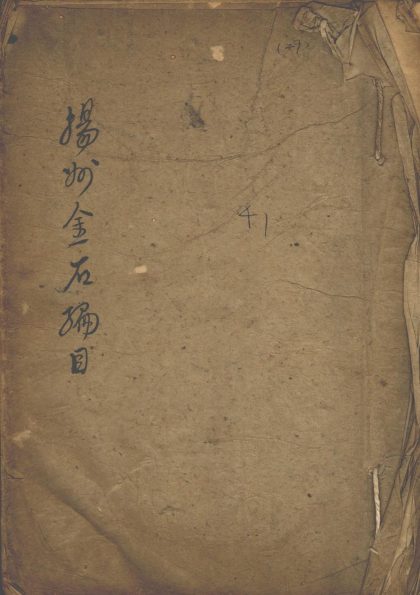 揚州金石編目
41
(121)